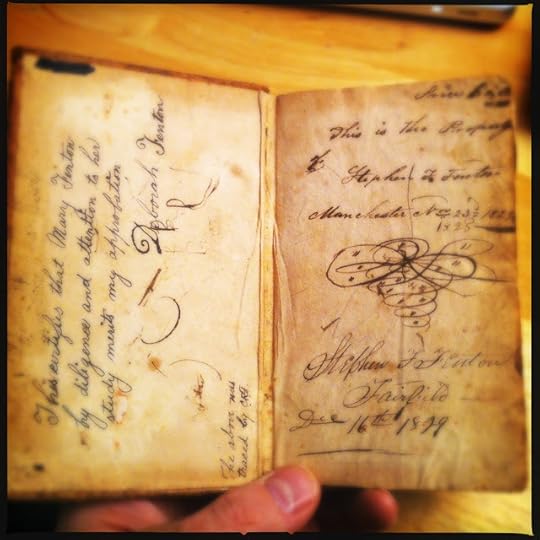 This certifies that Mary Fenton
by diligence and attention to her
study merits my approbation
Deborah Fenton
The above was
traced by
This is the Propety
of
Stephen F Fenton
Manchester Nov 23rd
1825
Stephen F Fenton
Fairfield
Dec 16th 1899